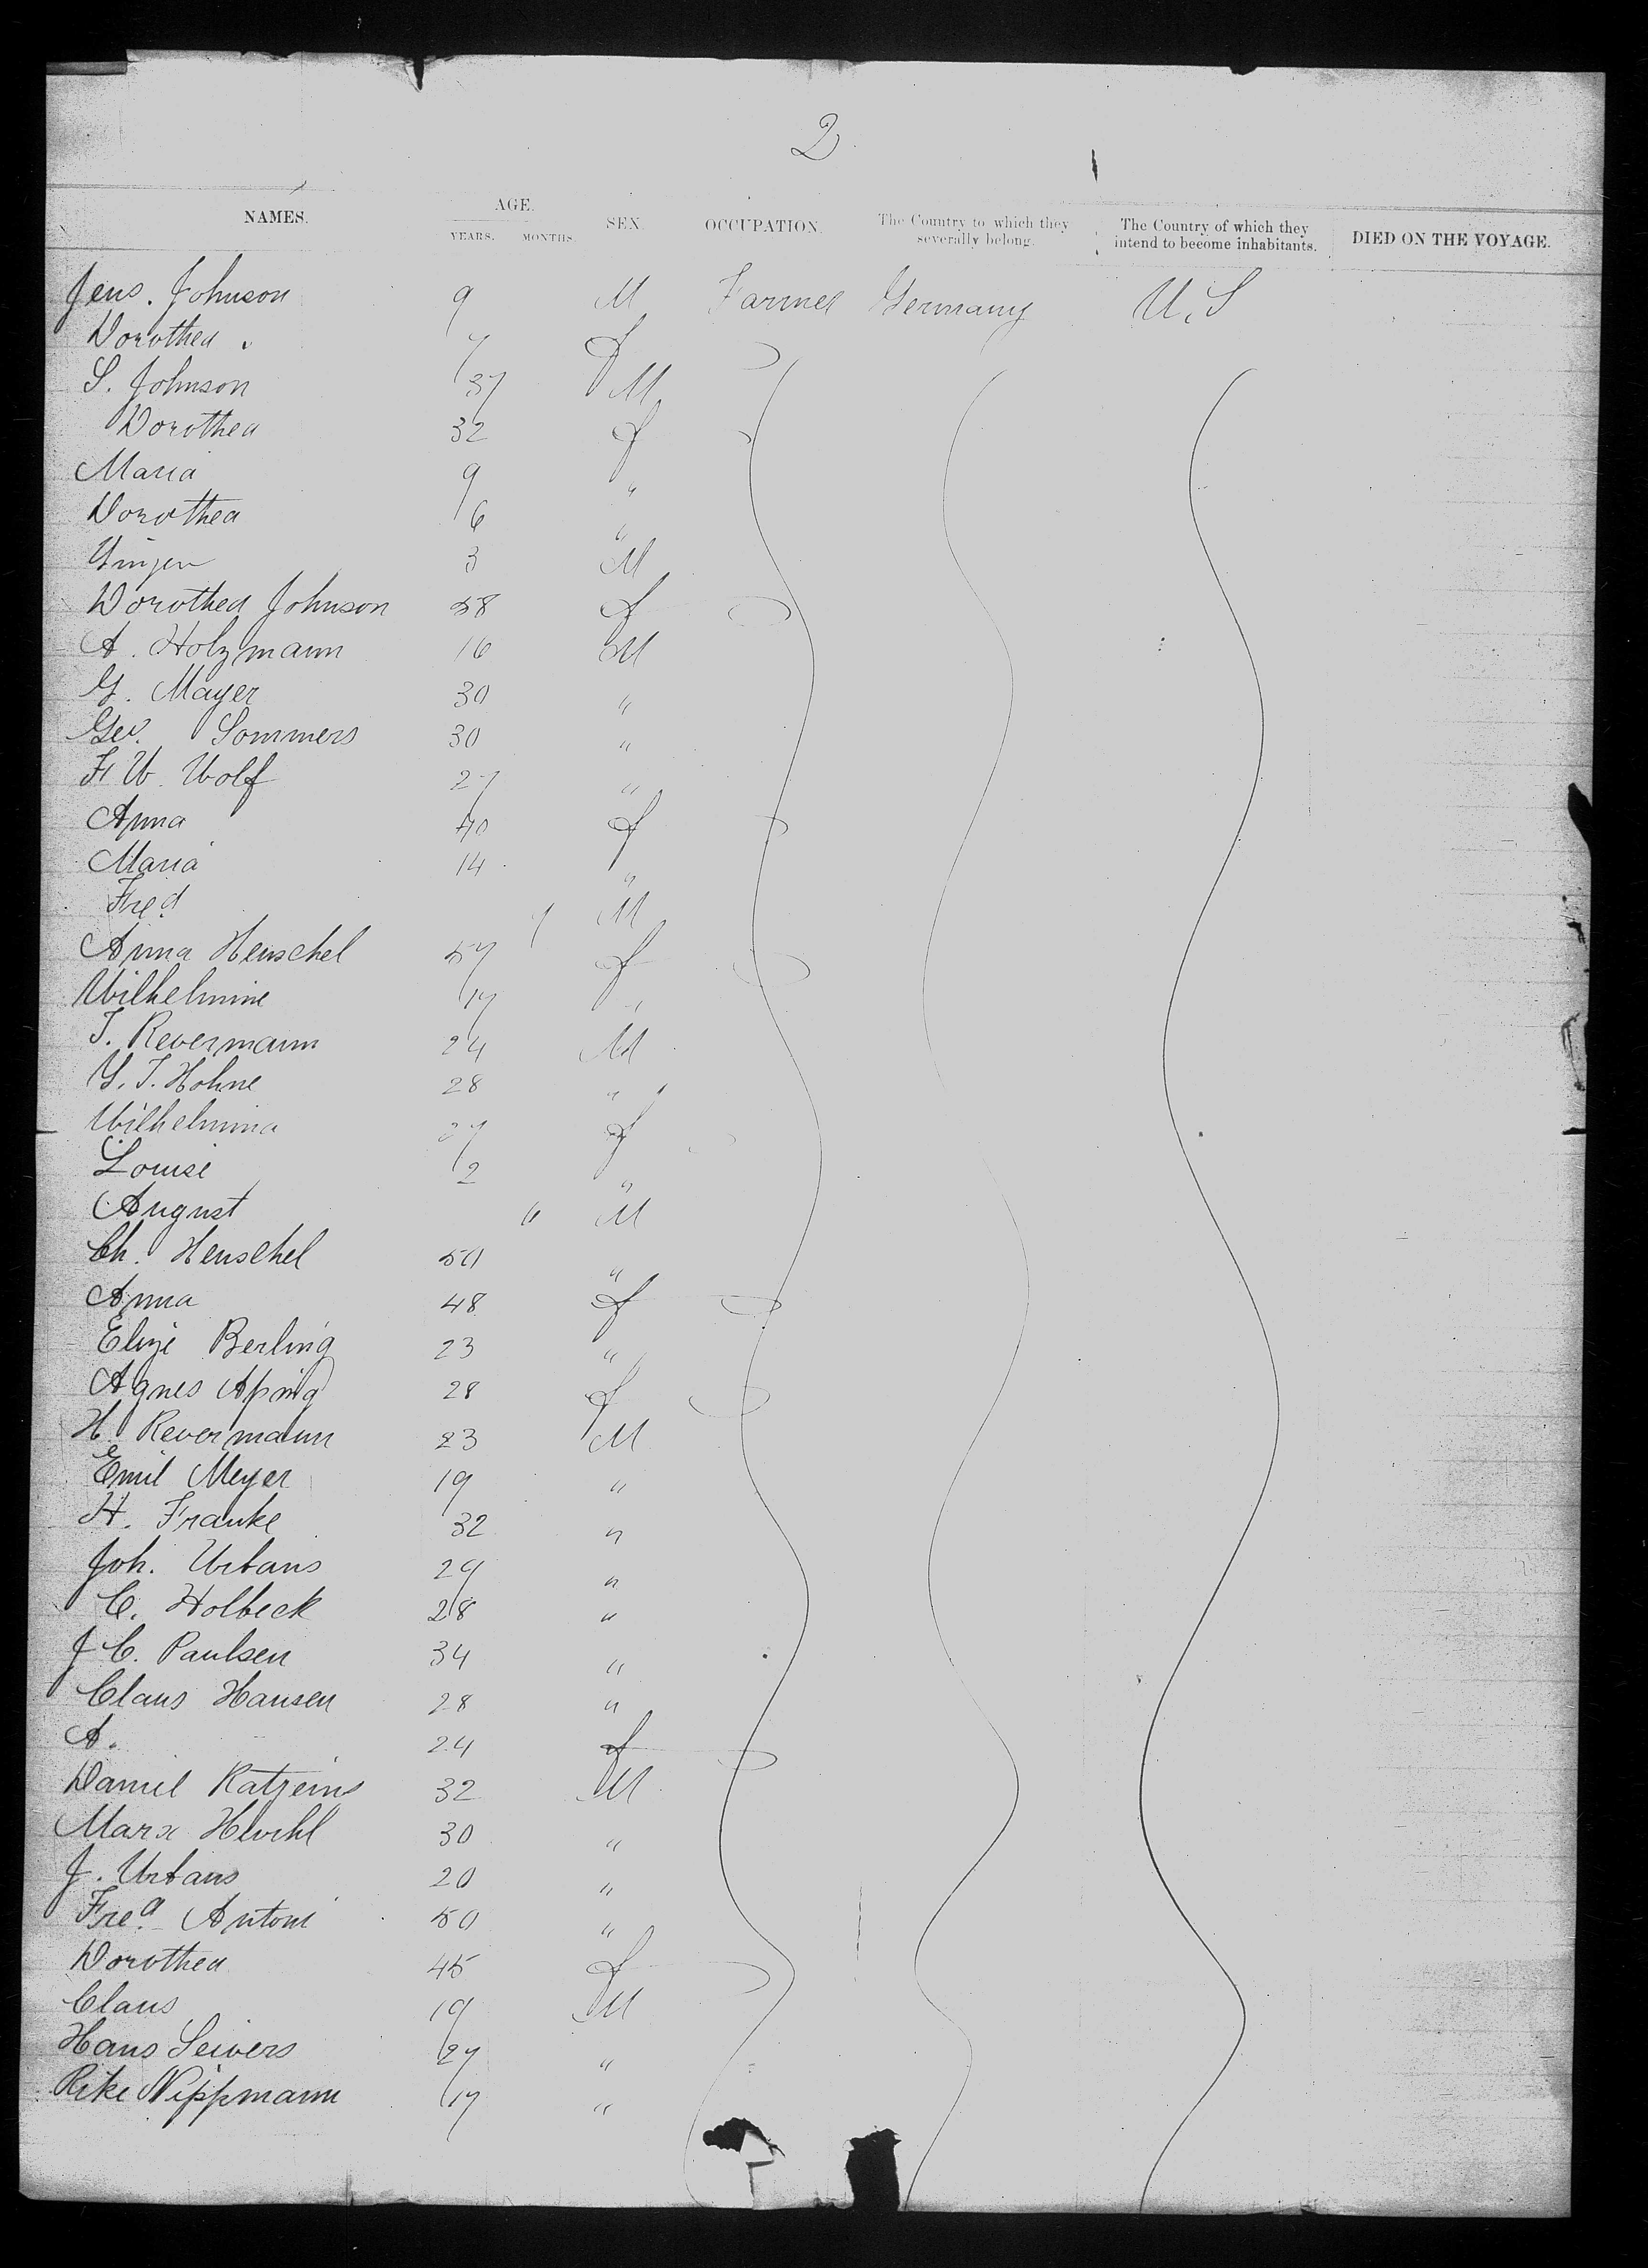 2
NAMES. AGE. YEARS. MONTHS. SEX. OCCUPATION. The Country to which they severally belong. The Country of which they intend to become inhabitants. DIED ON THE VOYAGE.
Jens. Johnson 9 M Farmer Germany U.S
Dorothea " 7 f
S. Johnson 37 M
Dorothea 32 f
Maria 9 "
Dorothea 6 "
3 M
Dorothea Johnson 58 f
A. Holzmann 16 M
G. Mayer 30 "
Geo. Sommers 30 "
F. W. Wolf 27 "
Anna 40 f
Maria 14 "
Fred 7 M
Anna Henschel 57 f
Wilhelmine 17 "
T. Revermann 24 M
Y. T. Hohne 28 "
Wilhelmina 27 f
Louise 2 "
August " M
Ch. Henschel 50 "
Anna 48 f
Elize Berling 23 "
Agnes 28 f
H. Revermann 23 M
Emil Meyer 19 "
H. Franke 32 "
Joh. Urbans 29 "
C. Holbeck 28 "
J C. Paulsen 34 "
Claus Hansen 28 "
A. 24 f
Daniel Katzeins 32 M
Marx 30 "
J. Urbans 20 "
Fred Antoni 50 "
Dorothea 45 f
Claus 19 M
Hans Seivers 27 "
Rike Nippmann 17 "